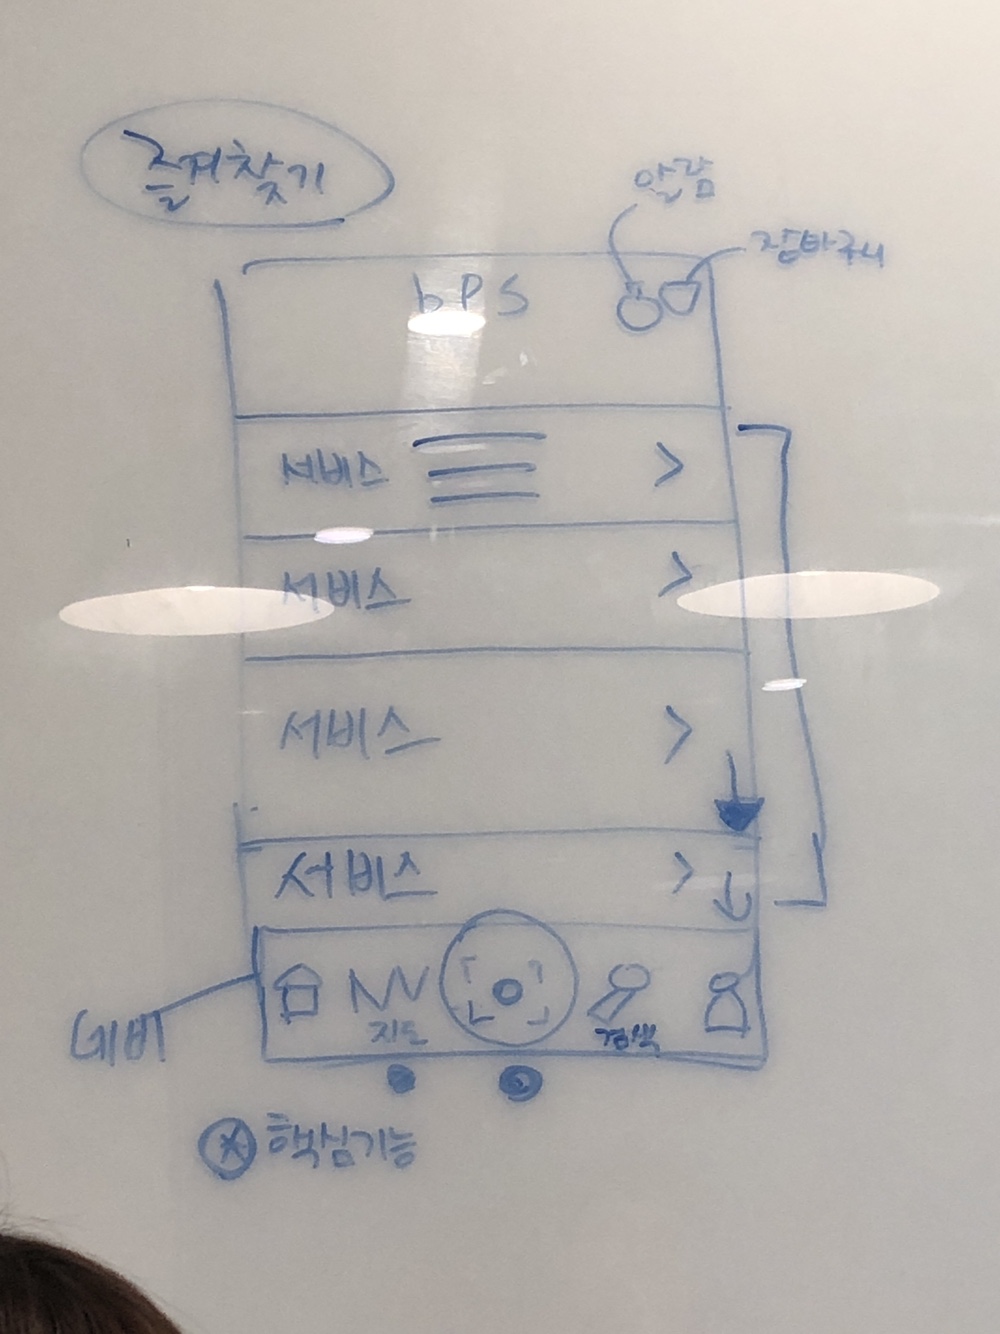 즐겨찾기
알람
장바구니
bPS
서비스
서비스
서비스
서비스
지도
검색
핵심기능